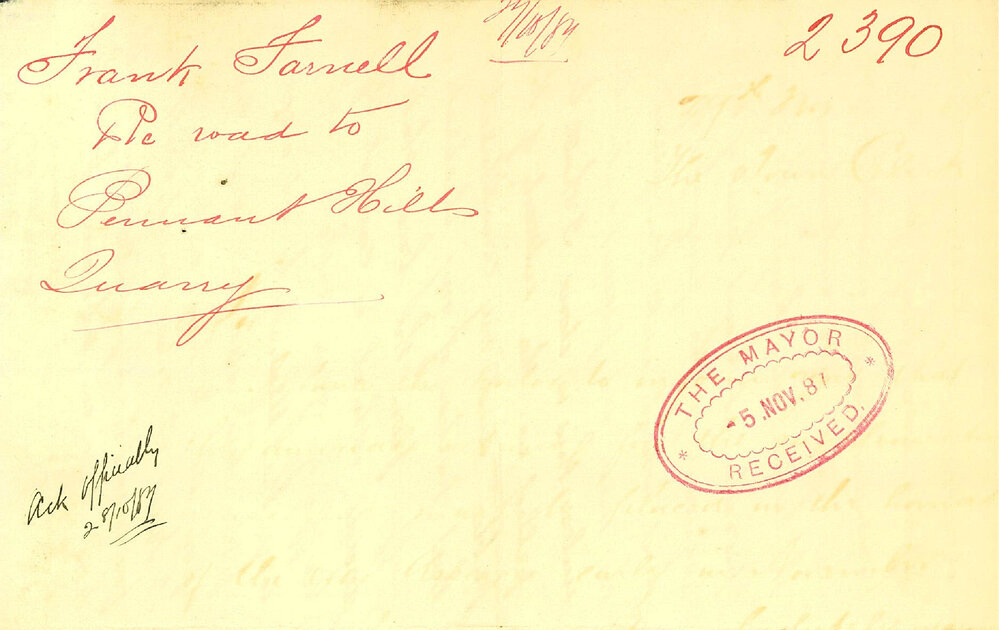 27/10/87
2390
Frank Farnell
Re road to
Pennant Hills
Quarry
THE MAYOR
5. NOV. 87
RECEIVED.
Ack officially
28/10/87